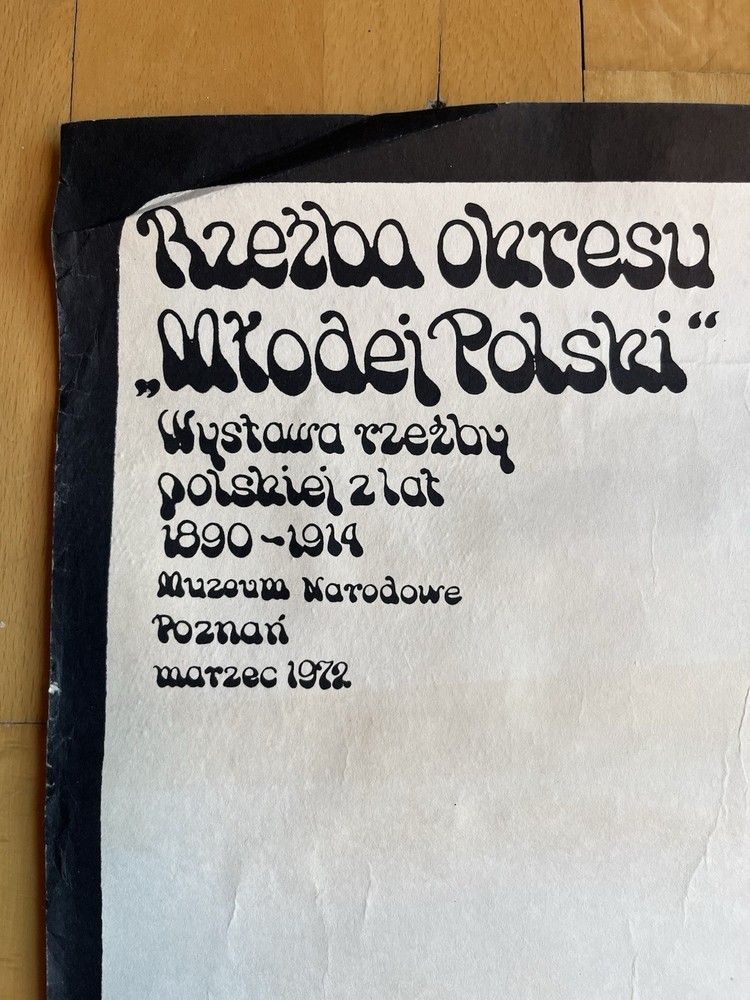 Rzeźba okresu
„Młodej Polski“
Wystawa rzeźby
polskiej z lat
1890-1914
Muzeum Narodowe
Poznań
marzec 1972